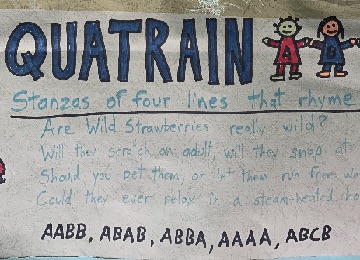 QUATRAIN
A B
Stanzas of four lines that rhyme
Are Wild Strawberries really wild?
Will they scratch an adult, will they snap at
Should you pet them, or let them run free
Could they ever relax in a steam-heated
AABB, ABAB, ABBA, AAAA, ABCB